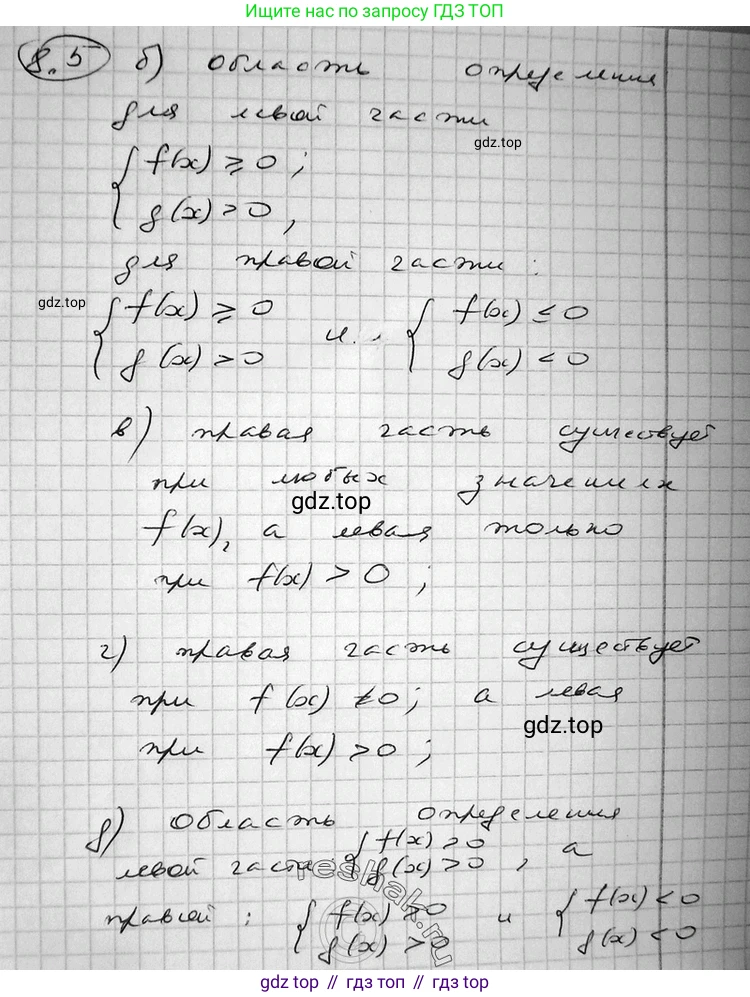 Ищите нас по запросу ГДЗ ТОП
8.5 б) область определения
для левой части
gdz.top
{ f(x) ≥ 0 ;
{ g(x) > 0 ,
для правой части :
gdz.top
{ f(x) ≥ 0 и { f(x) ≤ 0
{ g(x) > 0 { g(x) < 0
в) правая часть существует
при любых значениях
gdz.top
f(x), а левая только
при f(x) > 0 ;
г) правая часть существует
при f(x) ≠ 0; а левая
gdz.top
при f(x) > 0 ;
д) область определения
левой части { f(x) > 0 { g(x) > 0 , а
reshak.ru
правой : { f(x) > 0 и { f(x) < 0
{ g(x) > 0 { g(x) < 0
gdz top // гдз топ // gdz top